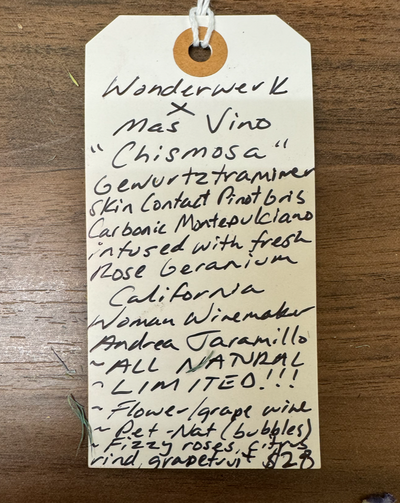 Wonderwerk
x
Mas Vino
"Chismosa"
Gewurtztraminer
Skin Contact Pinot Gris
Carbonic Montepulciano
infused with fresh
Rose Geranium
California
Woman Winemaker
Andrea Jaramillo
~ ALL NATURAL
~ LIMITED!!!
~ Flower/grape wine
~ Pet-Nat (bubbles)
~ Fizzy roses, citrus
rind, grapefruit $28